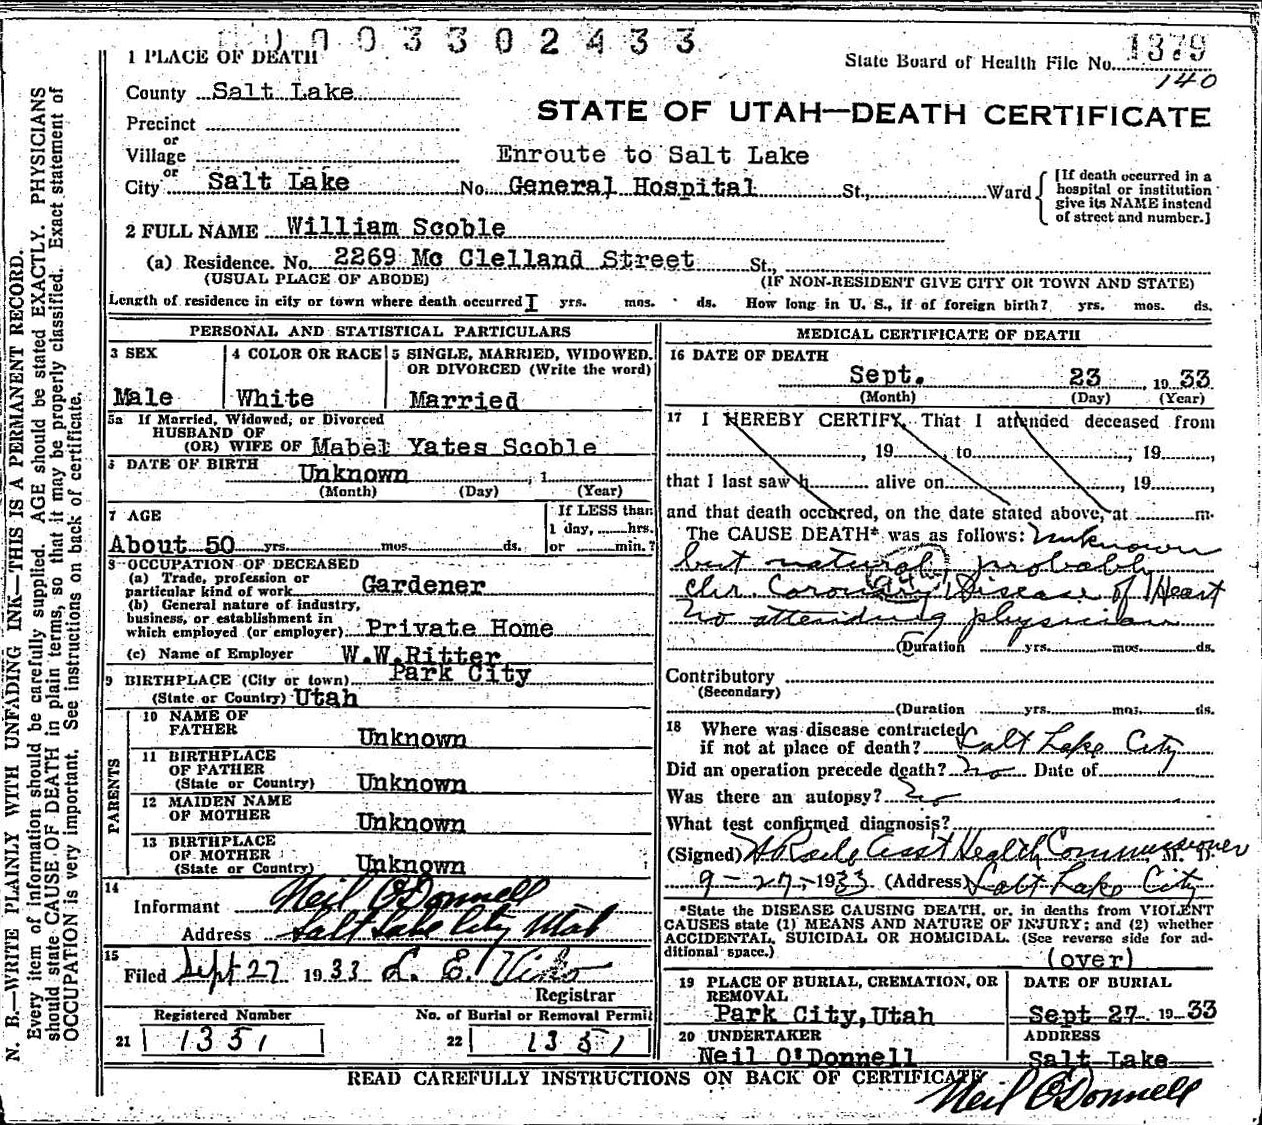 0003302433
1 PLACE OF DEATH
State Board of Health File No. 1379
140
County Salt Lake
STATE OF UTAH—DEATH CERTIFICATE
Precinct
or
Village
Enroute to Salt Lake
City or Salt Lake No. General Hospital St., Ward
[If death occurred in a hospital or institution give its NAME instead of street and number.]
2 FULL NAME William Scoble
(a) Residence. No. 2269 Mc Clelland Street St.,
(USUAL PLACE OF ABODE) (IF NON-RESIDENT GIVE CITY OR TOWN AND STATE)
Length of residence in city or town where death occurred I yrs. mos. ds. How long in U. S., if of foreign birth? yrs. mos. ds.
PERSONAL AND STATISTICAL PARTICULARS
3 SEX
Male
4 COLOR OR RACE
White
5 SINGLE, MARRIED, WIDOWED, OR DIVORCED (Write the word)
Married
5a If Married, Widowed, or Divorced
HUSBAND OF
(OR) WIFE OF Mabel Yates Scoble
6 DATE OF BIRTH Unknown , 1
(Month) (Day) (Year)
7 AGE
About 50 yrs. mos. ds.
If LESS than
1 day, hrs.
or min.?
8 OCCUPATION OF DECEASED
(a) Trade, profession or
particular kind of work Gardener
(b) General nature of industry,
business, or establishment in
which employed (or employer) Private Home
(c) Name of Employer W.W.Ritter
9 BIRTHPLACE (City or town) Park City
(State or Country) Utah
PARENTS
10 NAME OF
FATHER Unknown
11 BIRTHPLACE
OF FATHER
(State or Country) Unknown
12 MAIDEN NAME
OF MOTHER Unknown
13 BIRTHPLACE
OF MOTHER
(State or Country) Unknown
14
Informant Neil O'Donnell
Address Salt Lake City Utah
15
Filed Sept 27 1933 L. E. Viko
Registrar
Registered Number
21 1351
No. of Burial or Removal Permit
22 1351
MEDICAL CERTIFICATE OF DEATH
16 DATE OF DEATH
Sept. 23, 1933
(Month) (Day) (Year)
17 I HEREBY CERTIFY, That I attended deceased from
, 19 , to , 19 ,
that I last saw h alive on , 19 ,
and that death occurred, on the date stated above, at m.
The CAUSE DEATH* was as follows: Unknown
but natural, probably
chr. Coronary Disease of Heart
No attending physician
(Duration yrs. mos. ds.
Contributory
(Secondary)
(Duration yrs. mos. ds.
18 Where was disease contracted
if not at place of death? Salt Lake City
Did an operation precede death? no Date of
Was there an autopsy? no
What test confirmed diagnosis?
(Signed) Asst Health Commissioner M. D.
9-27-1933 (Address) Salt Lake City
*State the DISEASE CAUSING DEATH, or, in deaths from VIOLENT
CAUSES state (1) MEANS AND NATURE OF INJURY; and (2) whether
ACCIDENTAL, SUICIDAL OR HOMICIDAL. (See reverse side for ad-
ditional space.)
(over)
19 PLACE OF BURIAL, CREMATION, OR
REMOVAL
Park City, Utah
DATE OF BURIAL
Sept 27 1933
20 UNDERTAKER
Neil O'Donnell
ADDRESS
Salt Lake
READ CAREFULLY INSTRUCTIONS ON BACK OF CERTIFICATE
Neil O'Donnell
N. B.—WRITE PLAINLY WITH UNFADING INK—THIS IS A PERMANENT RECORD.
Every item of information should be carefully supplied. AGE should be stated EXACTLY. PHYSICIANS
should state CAUSE OF DEATH in plain terms, so that it may be properly classified. Exact statement of
OCCUPATION is very important. See instructions on back of certificate.